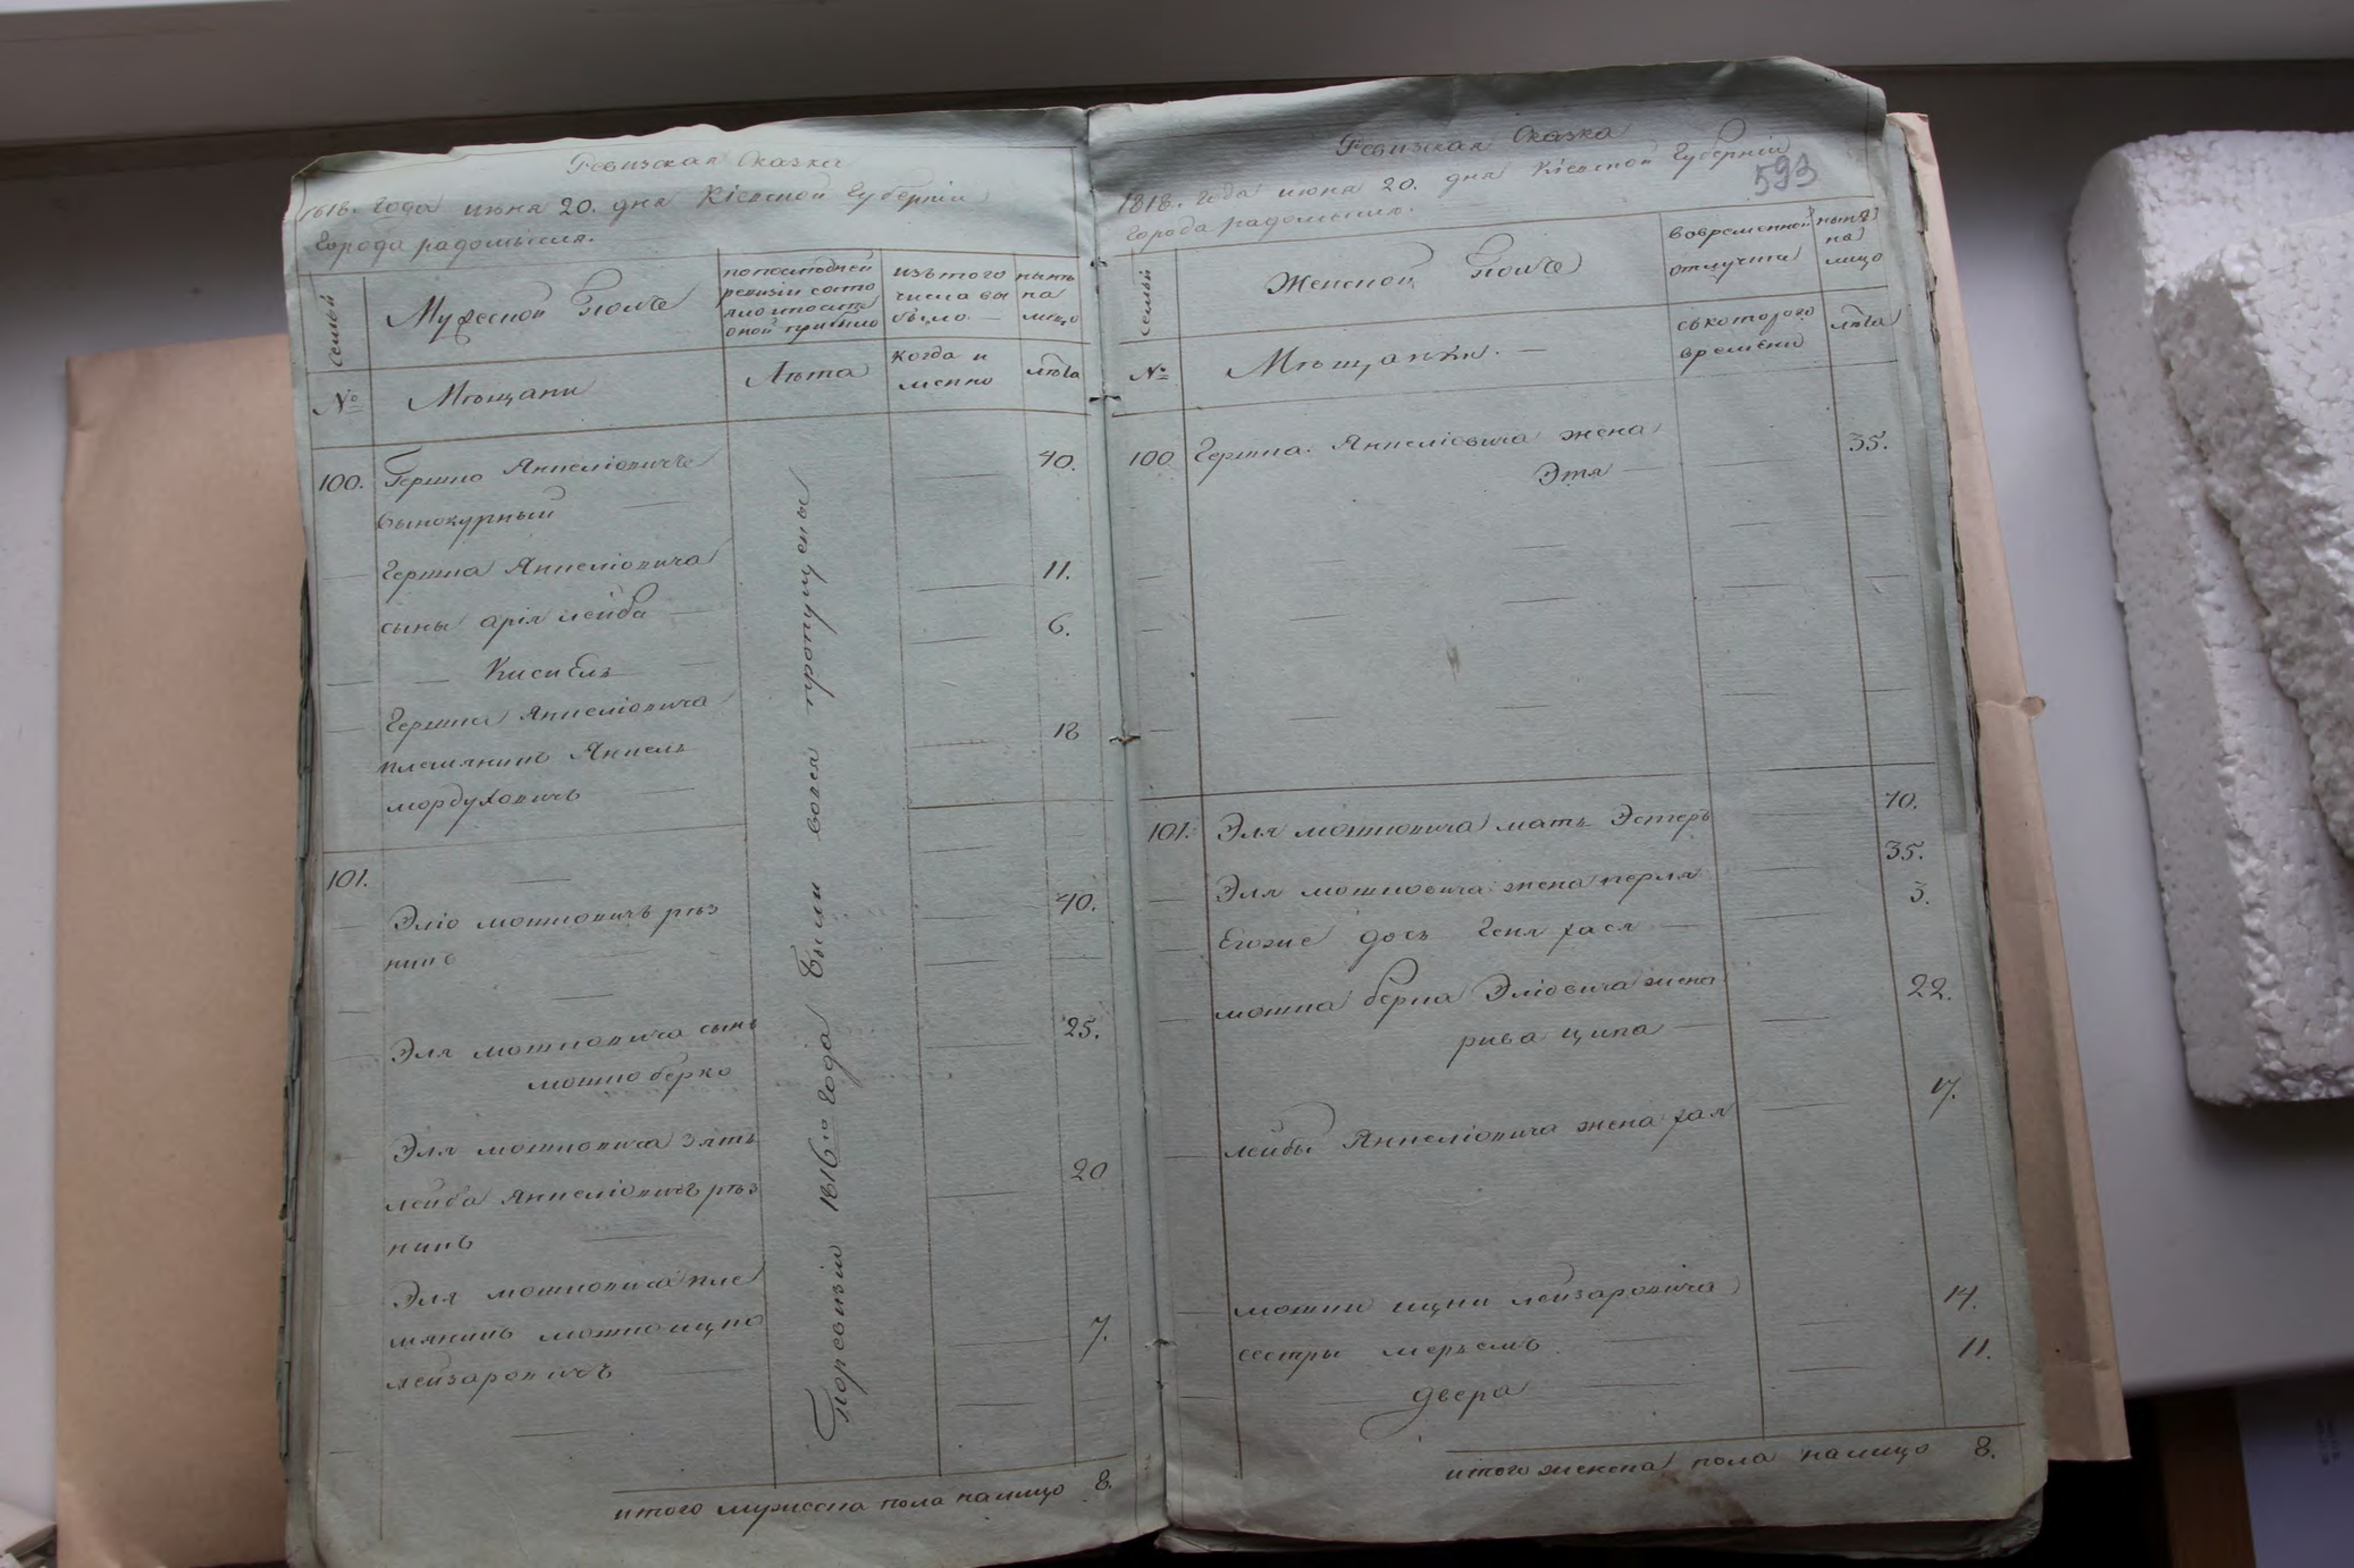 Ревизская Сказка
1818. года июня 20. дня Кіевской Губерніи
Города радомысля.
семьи
Мужеской Полъ
попоследней
ревизіи состо
яло ипосле
оной прибыло
изътого
числа вы
было —
ныне
на
лицо
№
Мѣщани
Лѣта
когда и
менно
лѣта
100. Гершко Янкеліовичъ 40.
винокурный
Гершка Янкеліовича 11.
сыны арія лейба 6.
Кисиель
Гершка Янкеліовича 18
племянникъ Янкель
мордуховичъ
101.
Эліо мошковичъ рѣз 40.
никъ
Эля мошковича сынъ 25.
мошко берко
Эля мошковича зять
лейба Янкеліовичъ рѣз 20
никъ
Эля мошковича пле
мяникъ мошко ицко 7.
лейзаровичъ
Поревизіи 1816го года были вовся пропущены
итого мужеска пола налицо 8.
Ревизская Сказка
1818. года июня 20. дня Кіевской Губерніи
593
Города радомысля.
семьи
Женской Полъ
вовременной
отлучки
ныне
на
лицо
№
Мѣщанки. —
съкоторого
времени
лѣта
100 Гершка Янкеліовича жена 35.
Этя
101. Эля мошковича мать Эстеръ 70.
Эля мошковича жена перля 35.
Егоже дочь Геня хася 3.
мошка берка Эліовича жена 22.
рива ципа
лейбы Янкеліовича жена хая 17.
мошки ицки лейзаровича 14.
сестры меръемъ 11.
двера
итого женска пола налицо 8.